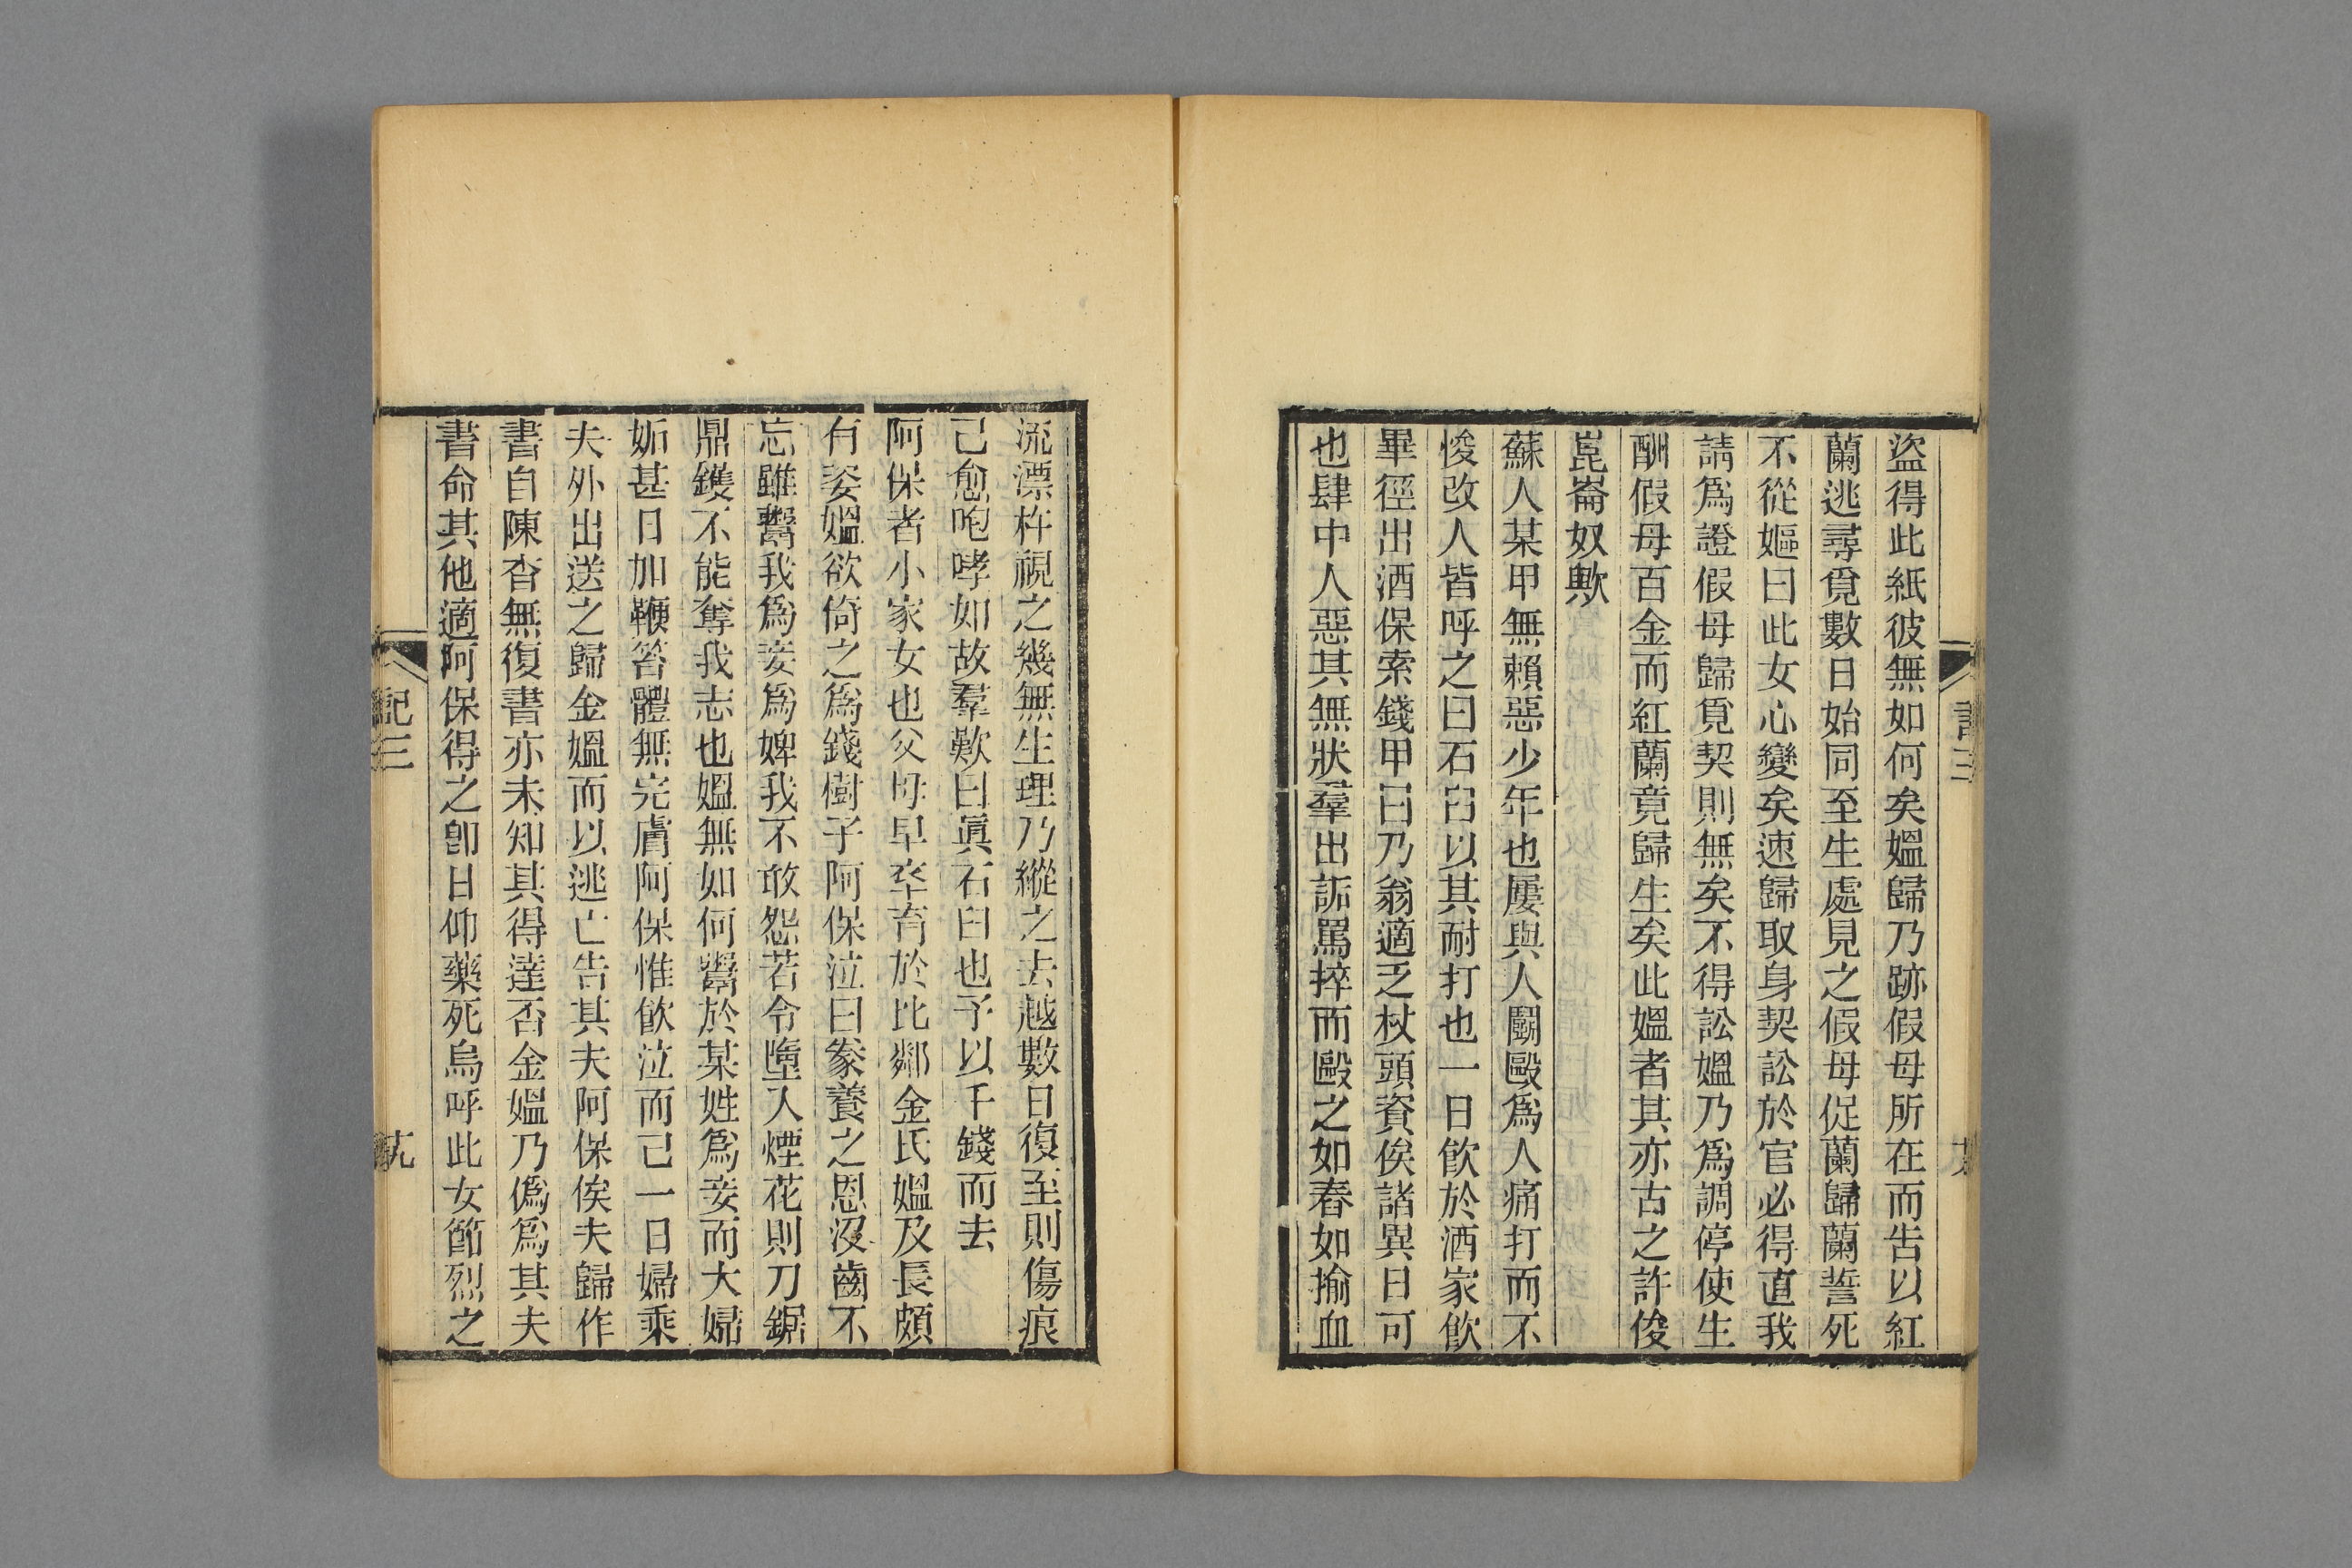 盜得此紙彼無如何矣媼歸乃跡假母所在而告以紅
蘭逃尋覓數日始同至生處見之假母促蘭歸蘭誓死
不從嫗曰此女心變矣速歸取身契訟於官必得直我
請爲證假母歸覓契則無矣不得訟媼乃爲調停使生
酬假母百金而紅蘭竟歸生矣此媼者其亦古之許俊
崑崙奴歟
蘇人某甲無賴惡少年也屢與人鬬毆爲人痛打而不
悛改人皆呼之曰石臼以其耐打也一日飮於酒家飮
畢徑出酒保索錢甲曰乃翁適乏杖頭資俟諸異日可
也肆中人惡其無狀羣出詬罵捽而毆之如舂如揄血
流漂杵視之幾無生理乃縱之去越數日復至則傷痕
已愈咆哮如故羣歎曰眞石臼也予以千錢而去
阿保者小家女也父母早卒育於比鄰金氏媼及長頗
有姿媼欲倚之爲錢樹子阿保泣曰豢養之恩沒齒不
忘雖鬻我爲妾爲婢我不敢怨若令墮入煙花則刀鋸
鼎鑊不能奪我志也媼無如何鬻於某姓爲妾而大婦
妬甚日加鞭笞體無完膚阿保惟飮泣而已一日婦乘
夫外出送之歸金媼而以逃亡告其夫阿保俟夫歸作
書自陳杳無復書亦未知其得達否金媼乃僞爲其夫
書命其他適阿保得之卽日仰藥死烏呼此女節烈之
記三